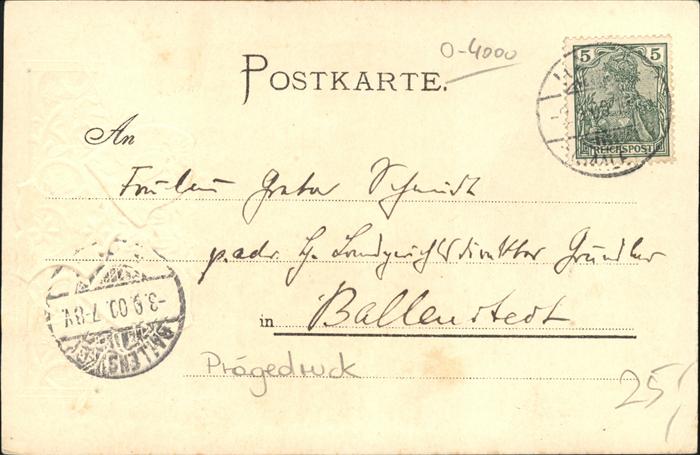 0-4000
POSTKARTE.
5 5
REICHSPOST
An
Fräulein Schmidt
p. adr. H. Landgerichtsdirektor Gründler
in Ballenstedt
-3.9.00.7-8V.
BALLENST
Prägedruck
25,-